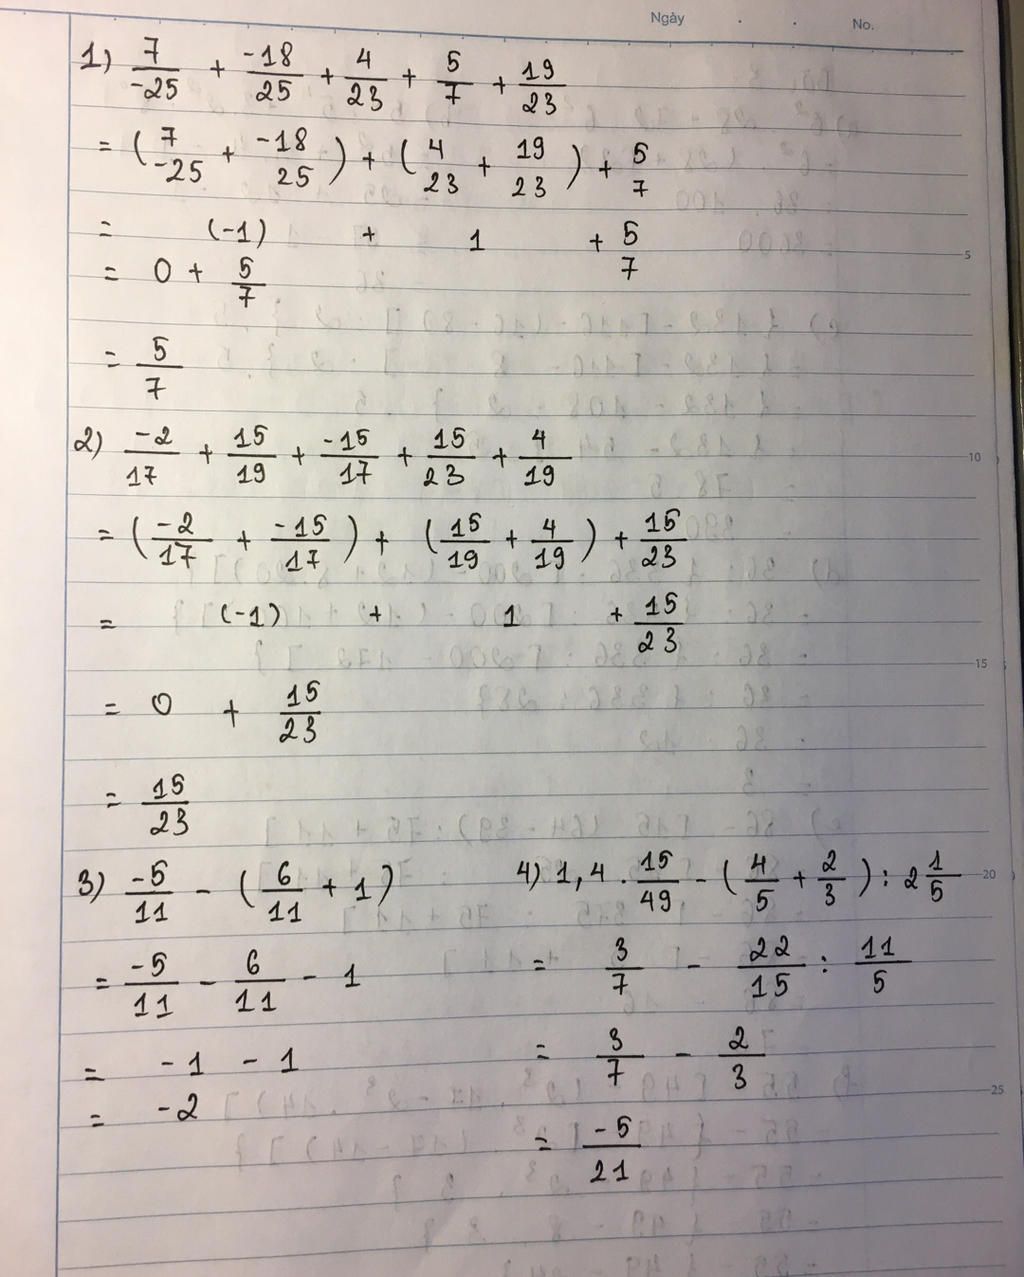 Ngày No.
1) 7/-25 + -18/25 + 4/23 + 5/7 + 19/23
= (7/-25 + -18/25) + (4/23 + 19/23) + 5/7
= (-1) + 1 + 5/7
5
= 0 + 5/7
= 5/7
2) -2/17 + 15/19 + -15/17 + 15/23 + 4/19
10
= (-2/17 + -15/17) + (15/19 + 4/19) + 15/23
= (-1) + 1 + 15/23
15
= 0 + 15/23
= 15/23
3) -5/11 - (6/11 + 1)
= -5/11 - 6/11 - 1
= -1 - 1
= -2
4) 1,4 . 15/49 - (4/5 + 2/3) : 2 1/5
20
= 3/7 - 22/15 : 11/5
= 3/7 - 2/3
25
= -5/21